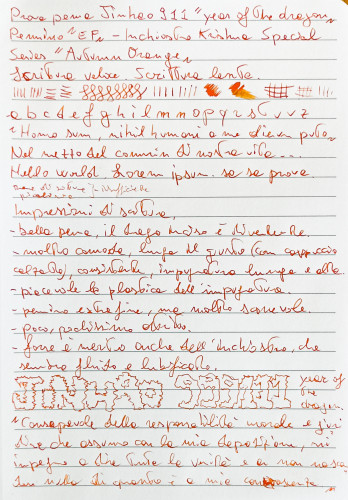 Prova penna Jinhao 911 "year of the dragon"
Pennino "EF" - Inchiostro Krishna Special
Series "Autumn Orange"
Scrittura veloce. Scrittura lenta.
a b c d e f g h i l m n o p q r s t u v z
"Homo sum, nihil humani a me alienum puto"
Nel mezzo del cammin di nostra vita...
Hello world. Lorem ipsum. sa sa prova.
Impressioni di scrittura,
- bella penna, il drago inciso è divertente.
- molto comoda, lunga il giusto (con cappuccio
calzato), consistente, impugnatura lunga e alta.
- piacevole la plastica dell'impugnatura.
- pennino extrafine, ma molto scorrevole.
- poco, pochissimo attrito.
- forse è merito anche dell'inchiostro, che
sembra fluido e lubrificato.
JINHAO 911 year of
the
dragon
"Consapevole della responsabilità morale e giuri
dica che assumo con la mia deposizione, mi
impegno a dire tutta la verità e a non nascon
dere nulla di quanto è a mia conoscenza"